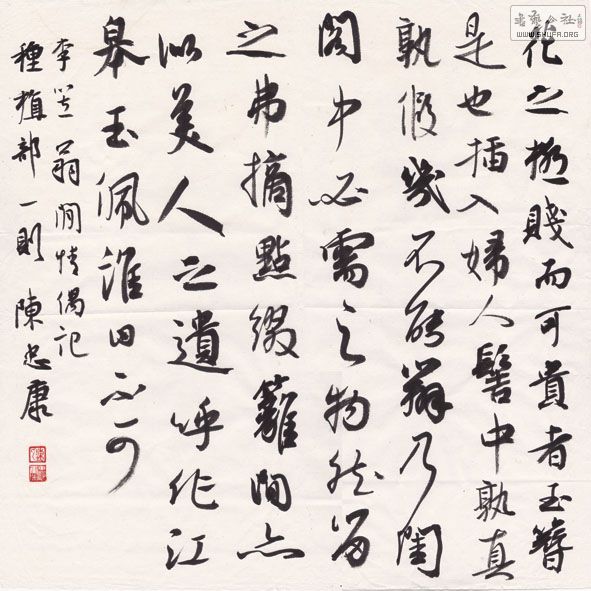 花之極賤而可貴者玉簪
是也插入婦人髻中孰真
孰假幾不能辨乃閨
閣中必需之物然留
之弗摘點綴籬間亦
似美人之遺呼作江
皋玉佩誰曰不可
李笠翁閒情偶記
種植部一則 陳忠康
WWW.SHUFA.ORG